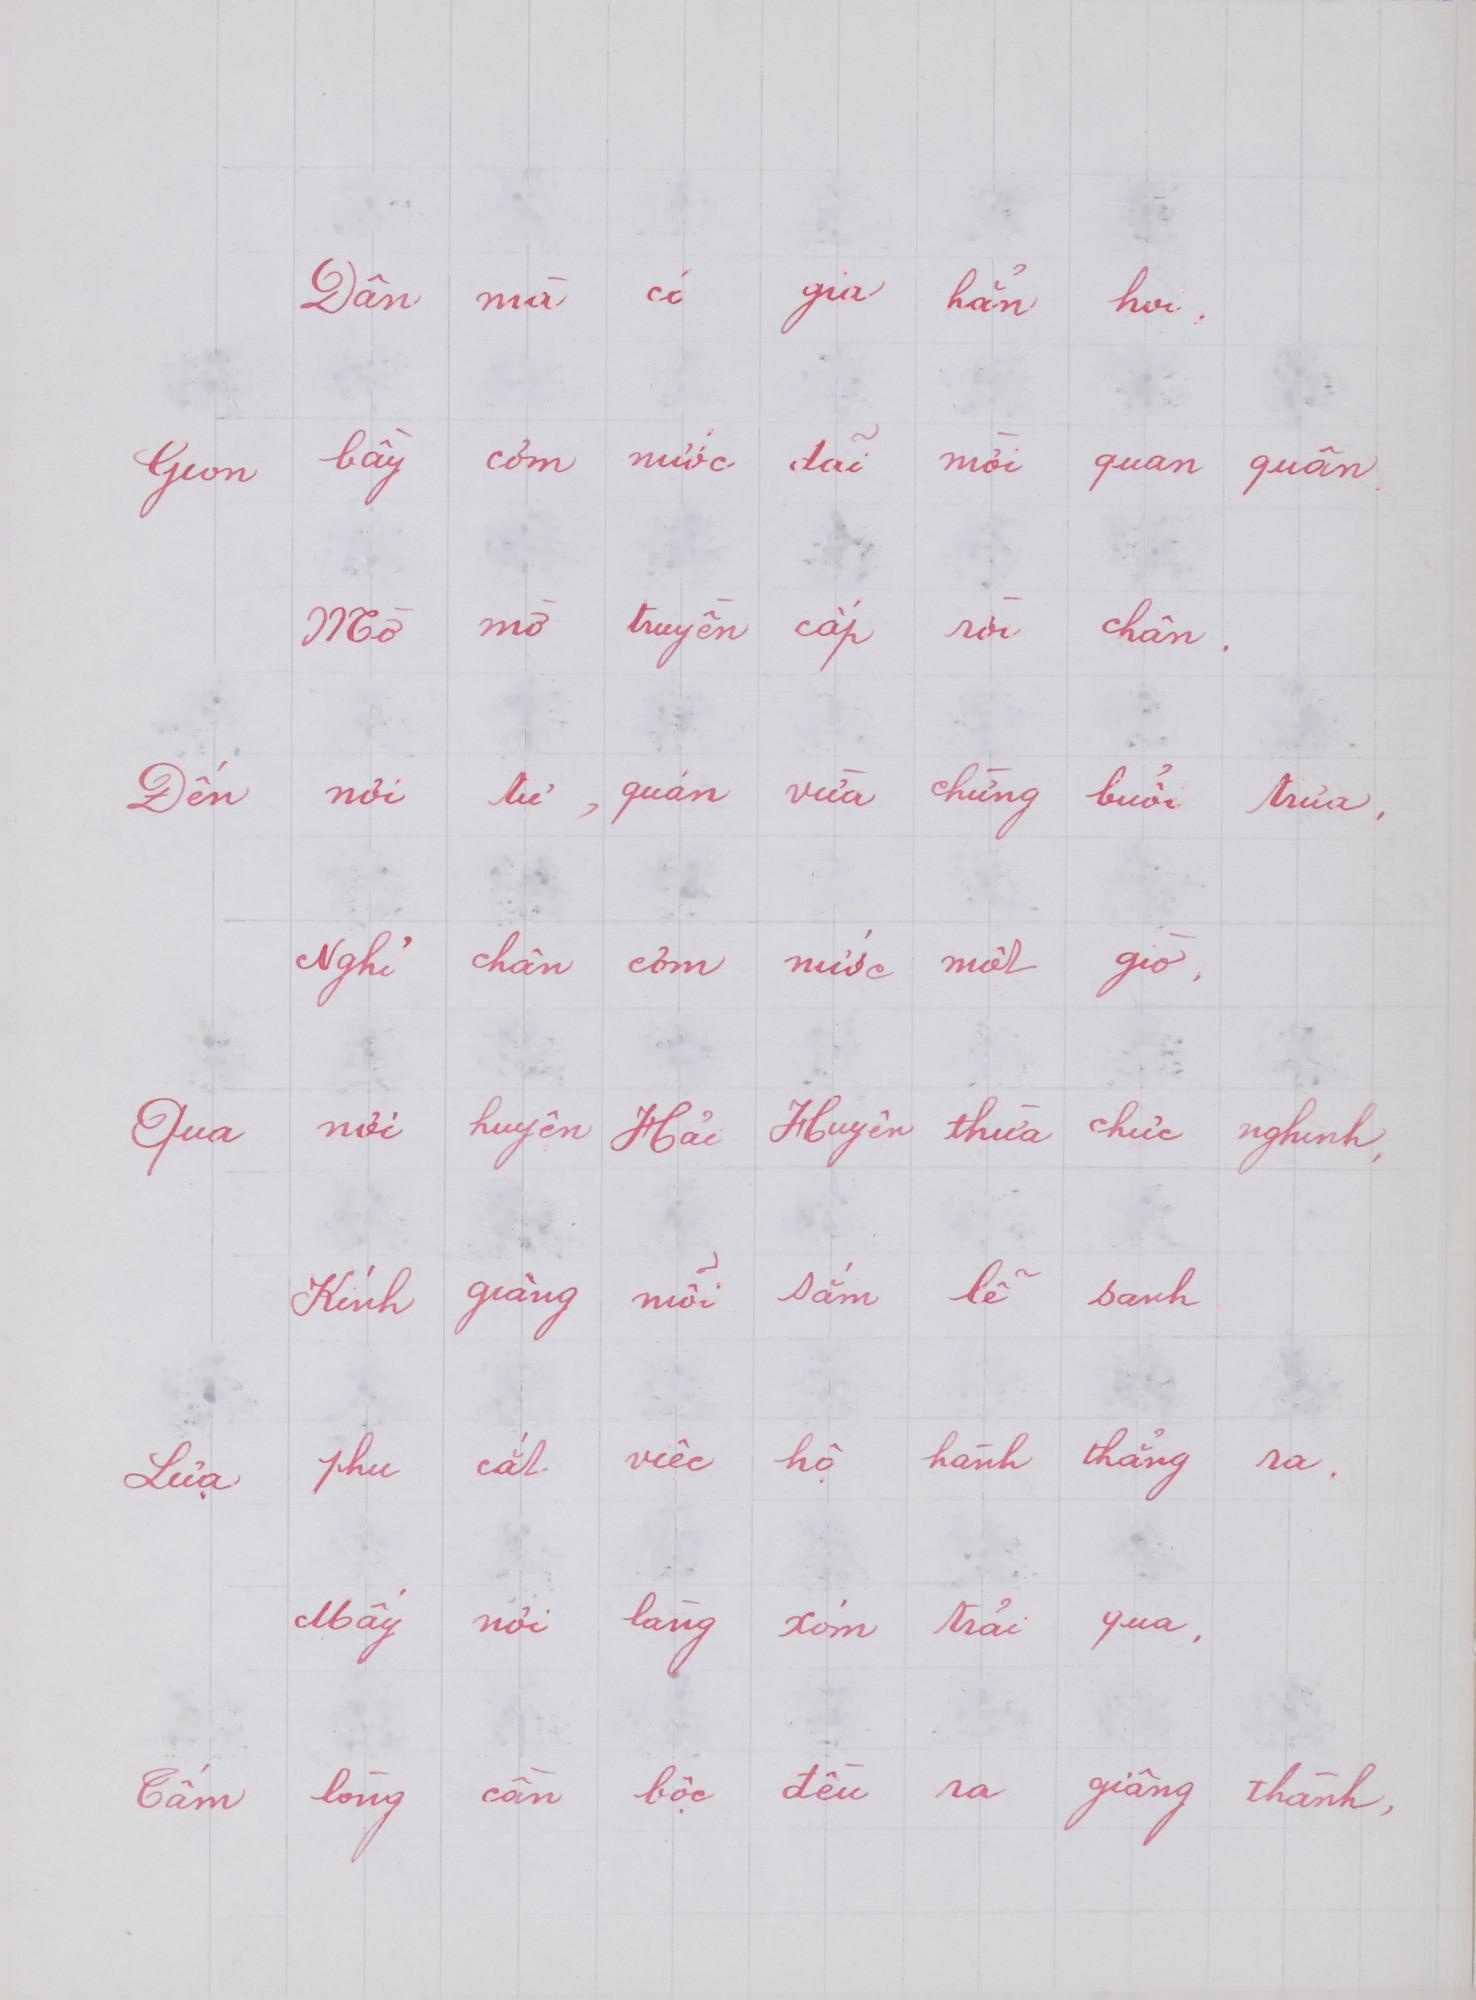 Dân mà có gia hẳn hơi.
Gion bầy cơm nước đãi mời quan quân.
Mờ mờ truyền cấp rời chân.
Đến nơi tư, quán vừa chừng buổi trưa,
Nghỉ chân cơm nước một giờ,
Qua nơi huyện Hải Huyện thừa chức nghinh,
Kính giâng mỗi sắm lễ sanh
Lựa phu cắt viêc hộ hành thẳng ra.
Mấy nơi làng xóm trải qua,
Tấm lòng cần bộc đều ra giâng thành,